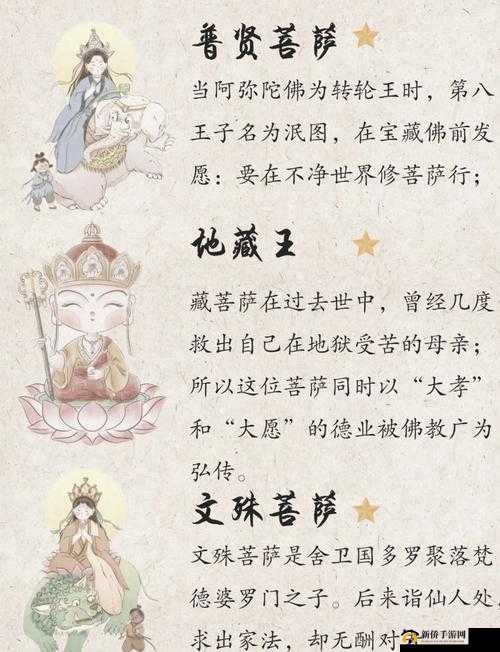 普贤菩萨
当阿弥陀佛为转轮王时，第八
王子名为泯图，在宝藏佛前发
愿：要在不净世界修菩萨行；
地藏王
藏菩萨在过去世中，曾经几度
救出自己在地狱受苦的母亲；
所以这位菩萨同时以“大孝”
和“大愿”的德业被佛教广为
弘传。
文殊菩萨
文殊菩萨是舍卫国多罗聚落梵
德婆罗门之子。后来诣仙人处
求出家法，却无酬对
新侨手游网